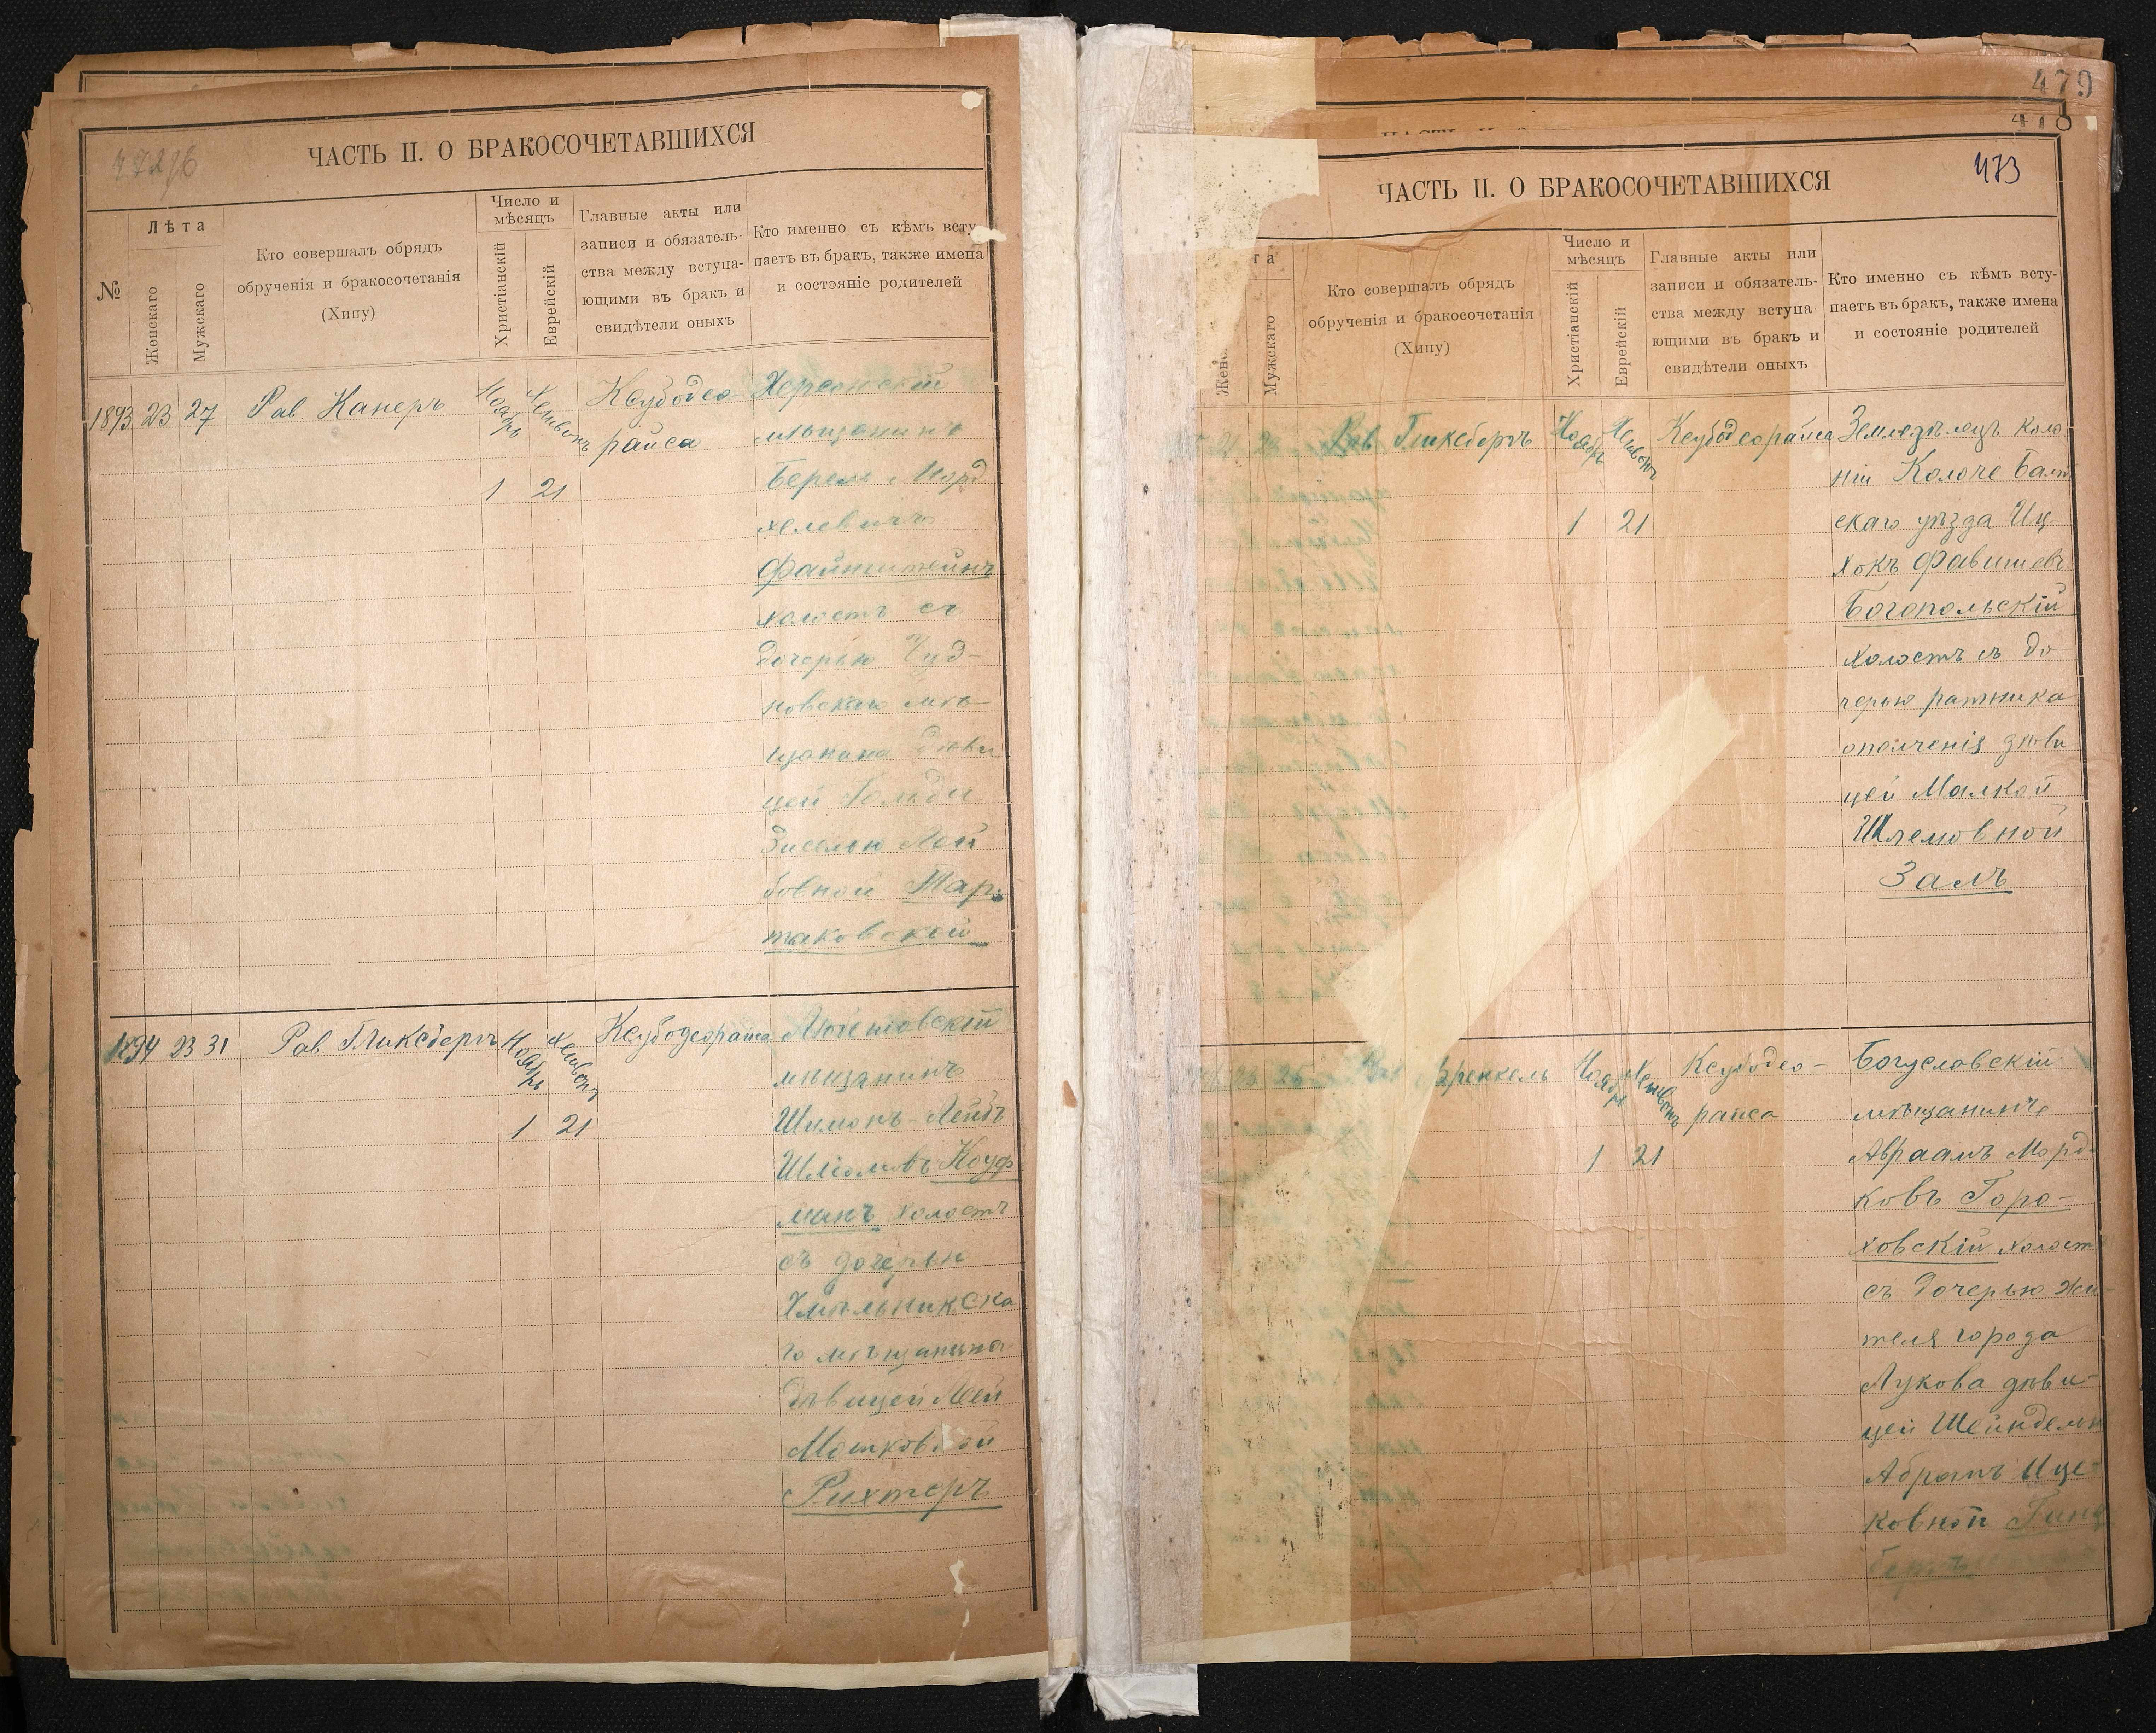 472/б
ЧАСТЬ II. О БРАКОСОЧЕТАВШИХСЯ
№
Лѣта
Женскаго
Мужскаго
Кто совершалъ обрядъ
обрученія и бракосочетанія
(Хипу)
Число и
мѣсяцъ
Христіанскій
Еврейскій
Главные акты или
записи и обязатель-
ства между вступа-
ющими въ бракъ и
свидѣтели оныхъ
Кто именно съ кѣмъ всту-
паетъ въ бракъ, также имена
и состояніе родителей
1893 23 27 Рав. Канеръ
Ноябрь Хешвонъ
1 21
Ксубодео-
райса
Херсонскій
мѣщанинъ
БерельМорд
хелевичъ
Файнштейнъ
холостъ съ
дочерью Чуд-
новскаго мѣ-
щанина дѣви
цей Гольди
Зиселью Лей
бовной Тар-
таковской
1894 23 31 Рав. Гликсбергъ
Ноябрь Хешвонъ
1 21
Ксубодеорайса
мѣщанинъ
Шимонъ-Лейбъ
Шліомовъ Коуф
манъ холостъ
съ дочерью
Хмѣльникска
го мѣщанина
дѣвицей Леей
Мошковной
Рихтеръ
479
478
473
ЧАСТЬ II. О БРАКОСОЧЕТАВШИХСЯ
та
Женс
Мужскаго
Кто совершалъ обрядъ
обрученія и бракосочетанія
(Хипу)
Число и
мѣсяцъ
Христіанскій
Еврейскій
Главные акты или
записи и обязатель-
ства между вступа
ющими въ бракъ и
свидѣтели оныхъ
Кто именно съ кѣмъ всту-
паетъ въ бракъ, также имена
и состояніе родителей
Рав. Гликсбергъ
Ноябрь Хешвонъ
1 21
Ксубодеорайса
Земледѣлецъ коло
ніи Колоче Балт
скаго уѣзда Иц
хокъ Фавишевъ
Богопольскій
холостъ съ до
черью ратника
ополченія дѣви
цей Малкой
Шлемовной
Залъ
Френкель
Ноябрь Хешвонъ
1 21
Ксубодео-
райса
Богуславскій
мѣщанинъ
Авраамъ Морд-
ковъ Горо-
ховскій холост
съ дочерью жи-
теля города
Лукова дѣви-
цей Шейндель
Абрамъ Ице-
ковной Гинц
бергъ